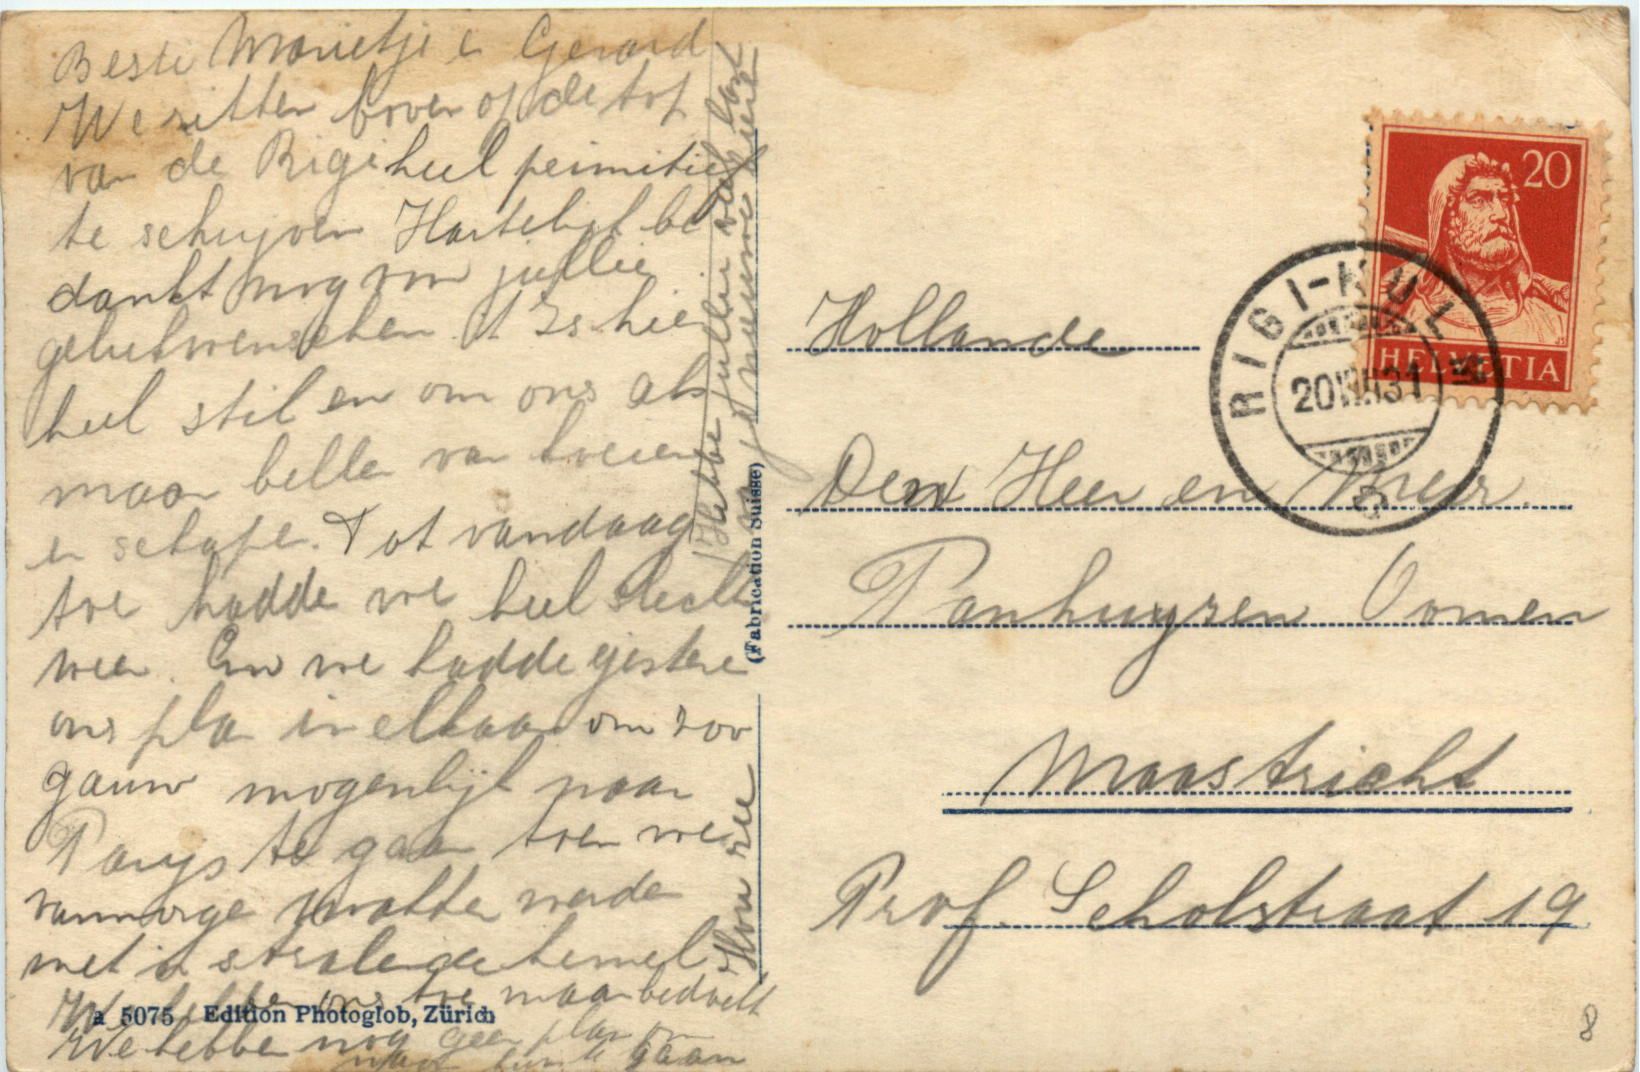 Beste Marietje e Gerard
We zitten boven op de top
van de Rigi heel permitief
te schrijven Hartelijk be
dankt nog voor jullie
gelukwenschen. t Is hier
heel stil en om ons als
maar belle van koeien
en schape. Tot vandaag
toe hadde we heel slecht
weer. En we hadde gistere
ons pla in elkaar om zoo
gauw mogenlijk naar
Parijs te gaan toen we
vanmorge wakker werde
met 'n stralende hemel
We hebbe ons toe maar bedacht
We hebbe nog geen plan om
naar huis te gaan
Hebbe jullie
a 5075 Edition Photoglob, Zürich
(Fabrication Suisse)
20
HELVETIA
RIGI-KULM
20 VIII 31
Hollande
Den Heer en Mevr.
Panhuysen Oomen
Maastricht
Prof. Scholstraat 19
8